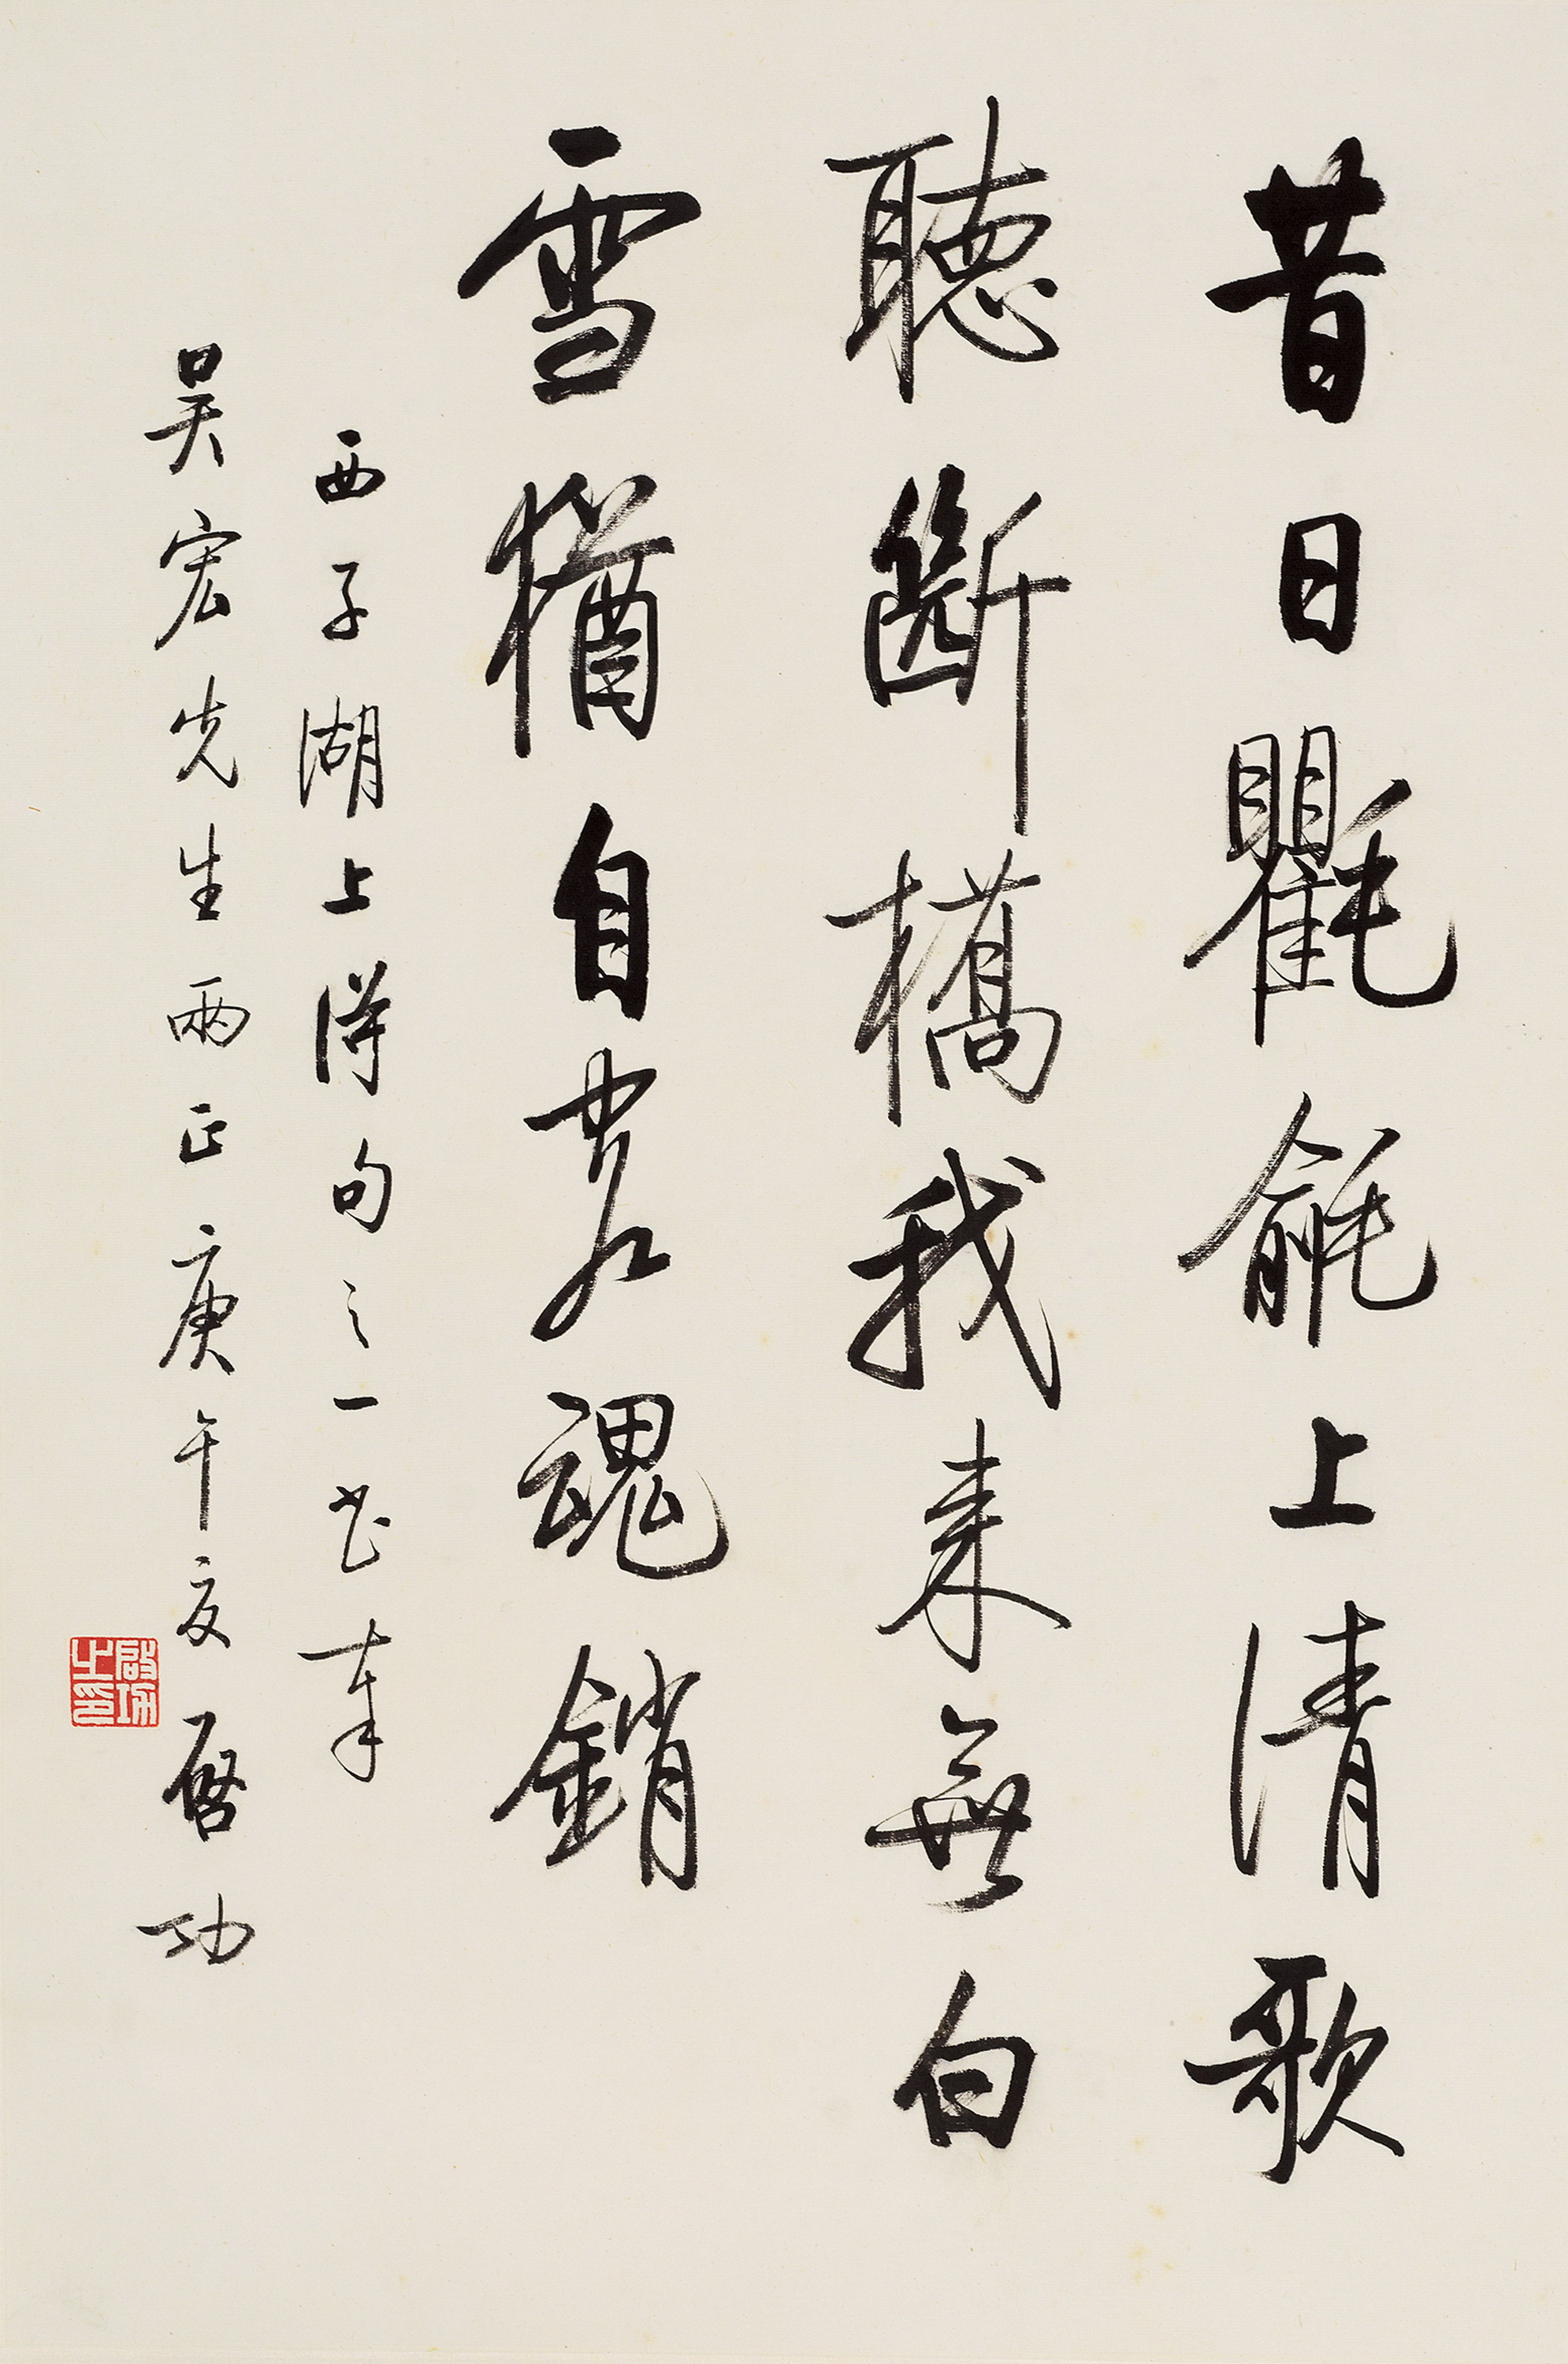 昔日氍毹上清歌
聽斷橋我來無白
雪猶自魂銷
西子湖上得句之一書奉
吴宏先生兩正庚午夏啓功
啟功之印